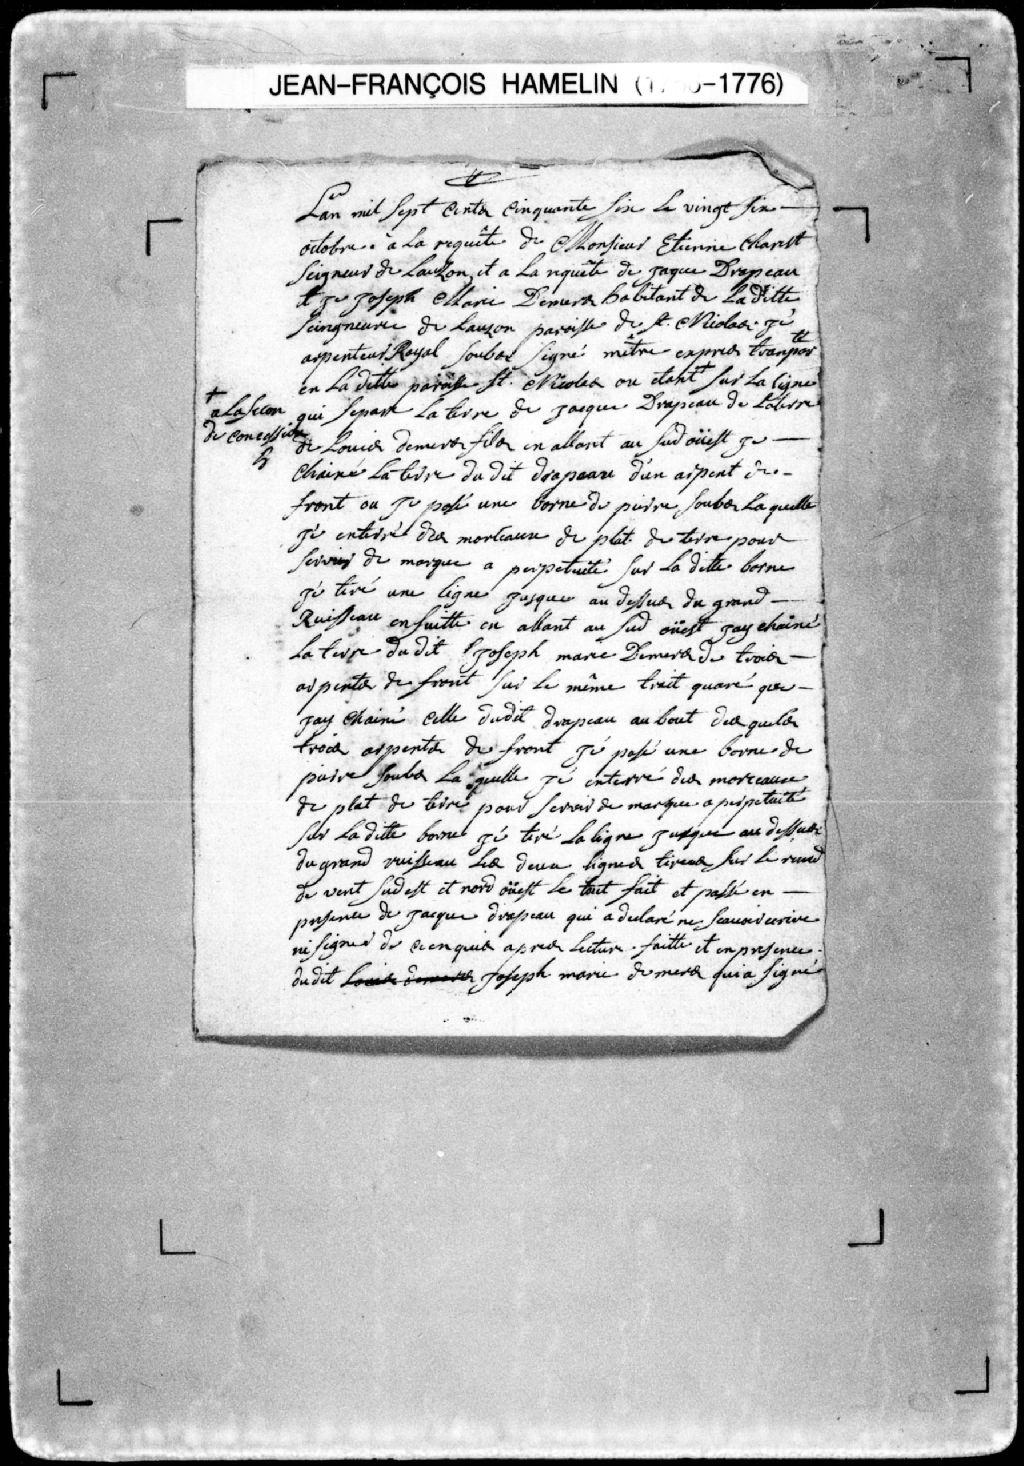 JEAN-FRANÇOIS HAMELIN (1   -1776)
Lan mil sept cents cinquante six le vingt six
octobre a la requête de Monsieur Etienne Charest
seigneur de Lauzon, et a la requête de jaque Drapeau
et de joseph Marie Demers habitant de La ditte
seingneurie de Lauzon paroisse de st. Nicolas jé
arpenteur Royal soubs signé mêtre expres tranporté
en La ditte paroisse st. Nicolas ou etant sur la ligne
+ a la secon
de concession
qui separe La terre de jacque Drapeau de La terre
de Louis demers fils en allant au sud oüest je
chainé La terre du dit drapeau d'un arpent de
front ou je posé une borne de pierre soubs La quelle
jé enterré des morceaux de plat de terre pour
servir de marque a perpetuité sur La ditte borne
jé tiré une ligne jusque au dessus du grand
Ruisseau ensuitte en allant au sud oüest jay chainé
La terre du dit joseph marie Demers de trois
arpents de front sur le même trait quaré que
jay chainé celle du dit drapeau au bout des quels
trois arpents de front jé posé une borne de
pierre soubs La quelle jé enterré des morceaux
de plat de terre pour servir de marque a perpetuité
sur La ditte borne jé tiré La ligne jusque au dessus
du grand ruisseau Les deux lignes tirees sur le
de vent sud est et nord oüest le tout fait et passé en
presence de jacque drapeau qui a declaré ne scavoir ecrire
ni signer de ce enquis apres Lecture faitte et en presence
du dit Louis demers joseph marie demers qui a signé